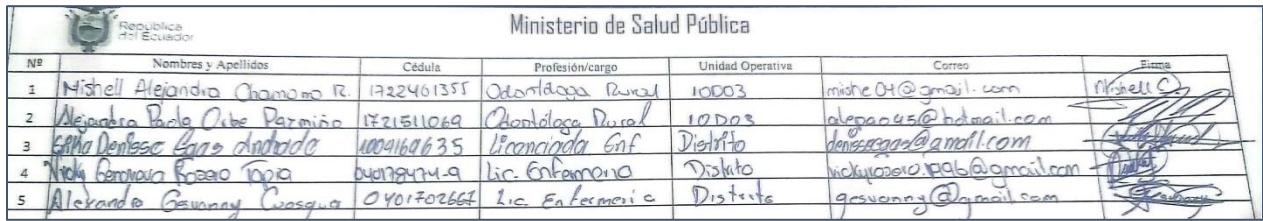 República del Ecuador
Ministerio de Salud Pública
Nº Nombres y Apellidos Cédula Profesión/cargo Unidad Operativa Correo Firma
1 Mishell Alejandra Chamorro R. 1722461355 Odontóloga Rural 10D03 mishe04@gmail.com Mishell C
2 Alejandra Paola Oribe Pazmiño 1721511069 Odontóloga Rural 10D03 alepao45@hotmail.com
3 Denisse Andrade 1004169635 Licenciada Enf Distrito
4 Vicky Genovava Rosero Tapia Lic. Enfermeria Distrito vickyrosero.1996@gmail.com
5 Alexandra Gesuanny Cuasquer 0401702667 Lic. Enfermeria Distrito gesuanny@gmail.com